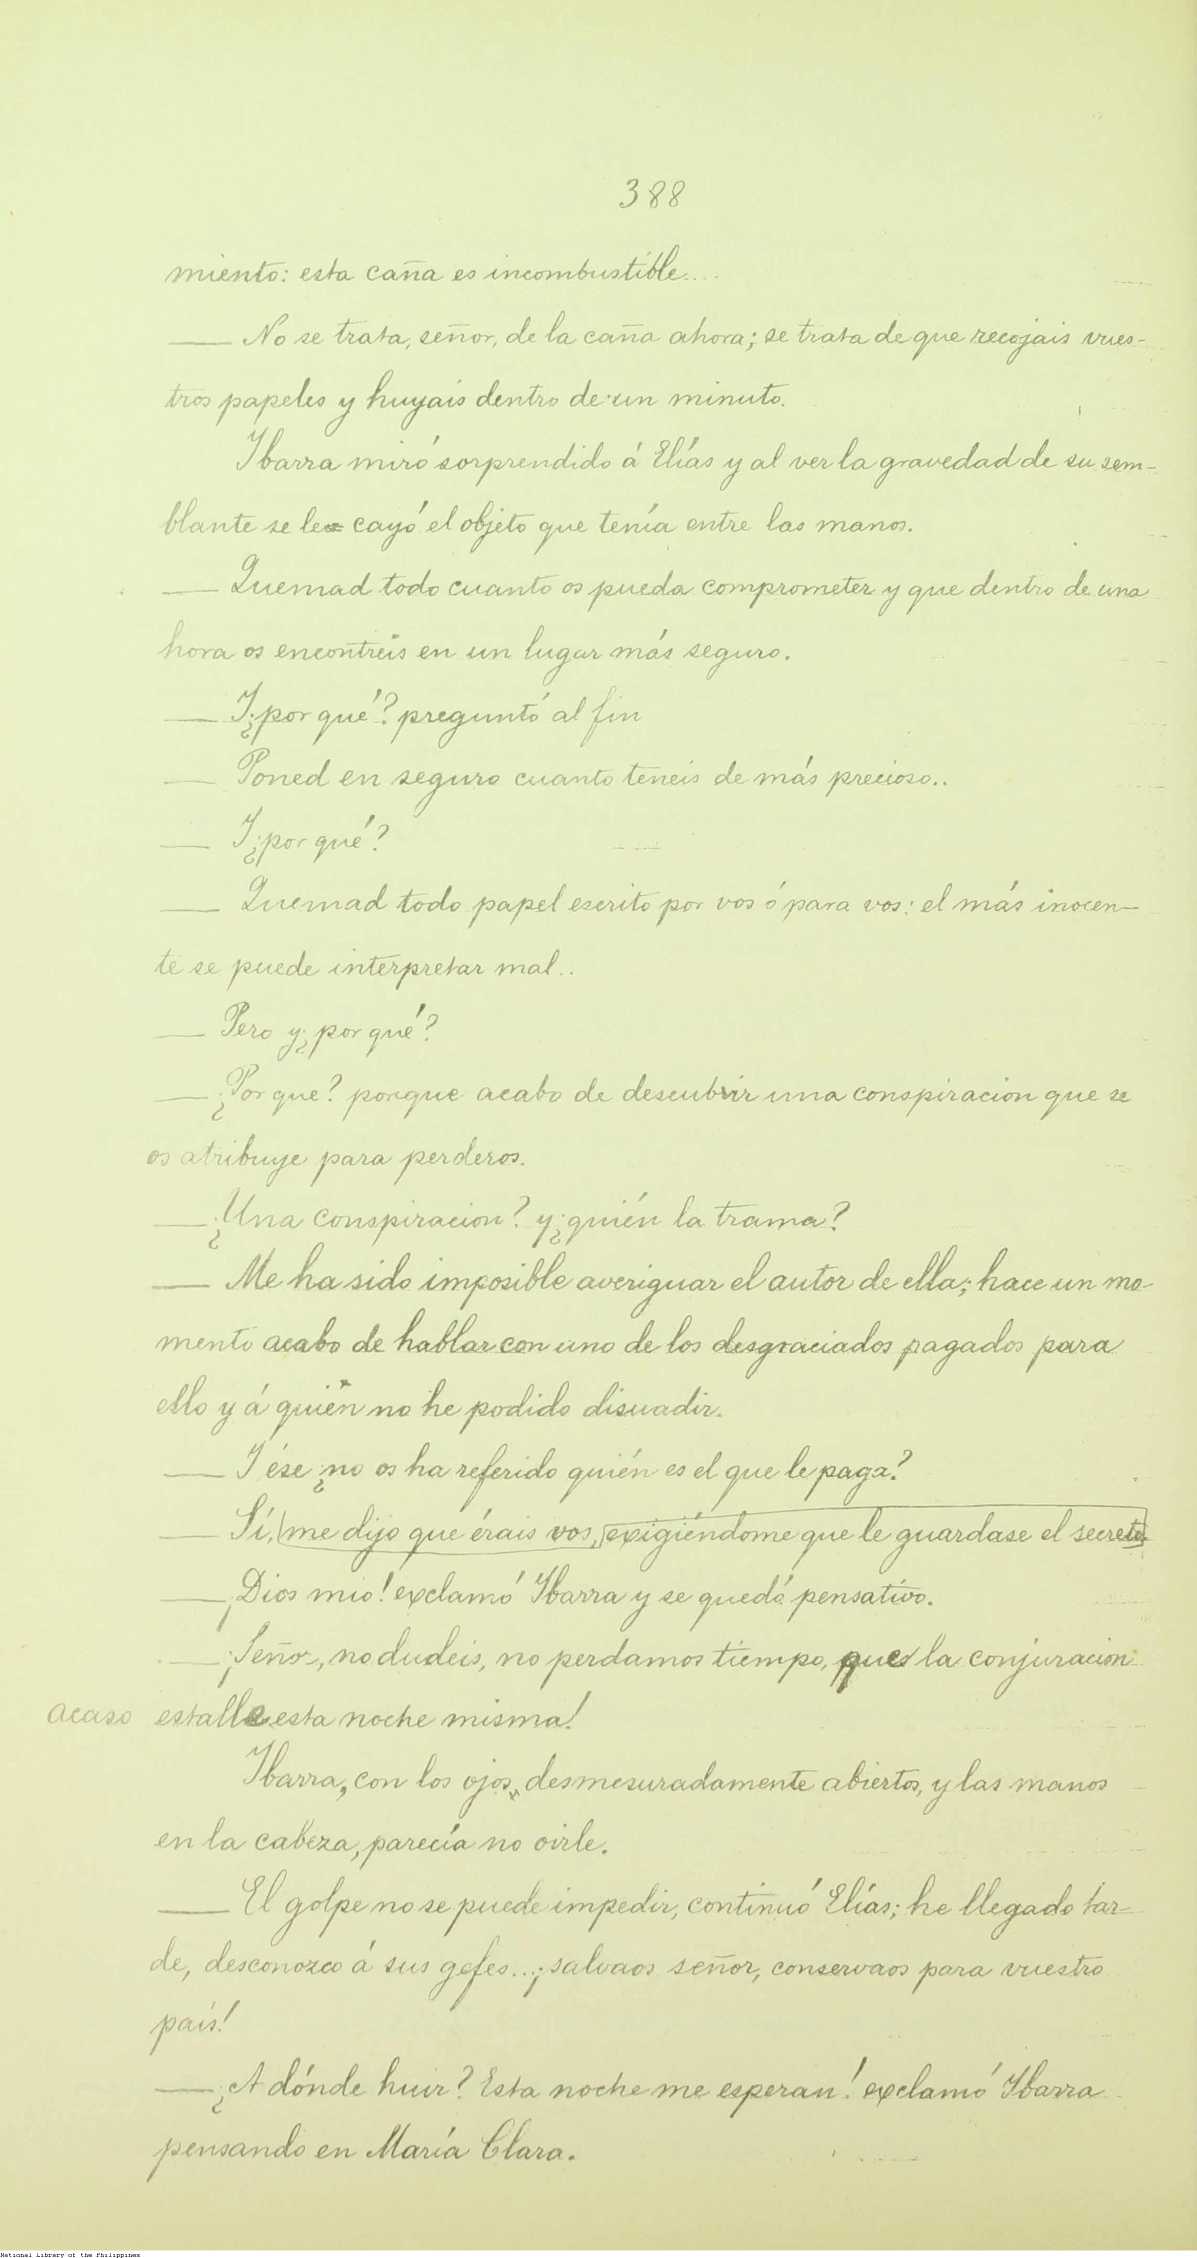 388
miento: esta caña es incombustible....
— No se trata, señor, de la caña ahora; se trata de que recojais vues-
tros papeles y huyais dentro de un minuto.
Ibarra miró sorprendido á Elías y al ver la gravedad de su sem-
blante se le cayó el objeto que tenía entre las manos.
— Quemad todo cuanto os pueda comprometer y que dentro de una
hora os encontreis en un lugar más seguro.
— Y ¿por qué? preguntó al fin
— Poned en seguro cuanto teneis de más precioso..
— Y ¿por qué?
— Quemad todo papel escrito por vos ó para vos: el más inocen-
te se puede interpretar mal..
— Pero y ¿por qué?
— ¿Por que? porque acabo de descubrir una conspiracion que se
os atribuye para perderos.
— ¿Una conspiracion? y ¿quién la trama?
— Me ha sido imposible averiguar el autor de ella; hace un mo-
mento acabo de hablar con uno de los desgraciados pagados para
ello y á quién no he podido disuadir.
— Y ése ¿no os ha referido quién es el que le paga?
— Sí, me dijo que érais vos, exigiéndome que le guardase el secreto
— ¡Dios mio! exclamó Ibarra y se quedó pensativo.
— ¡Señor, no dudeis, no perdamos tiempo, que la conjuracion
acaso estalle esta noche misma!
Ibarra, con los ojos desmesuradamente abiertos, y las manos
en la cabeza, parecía no oirle.
— El golpe no se puede impedir, continuó Elías; he llegado tar-
de, desconozco á sus gefes...¡salvaos señor, conservaos para vuestro
país!
— ¿A dónde huir? Esta noche me esperan! exclamó Ibarra
pensando en María Clara.
National Library of the Philippines